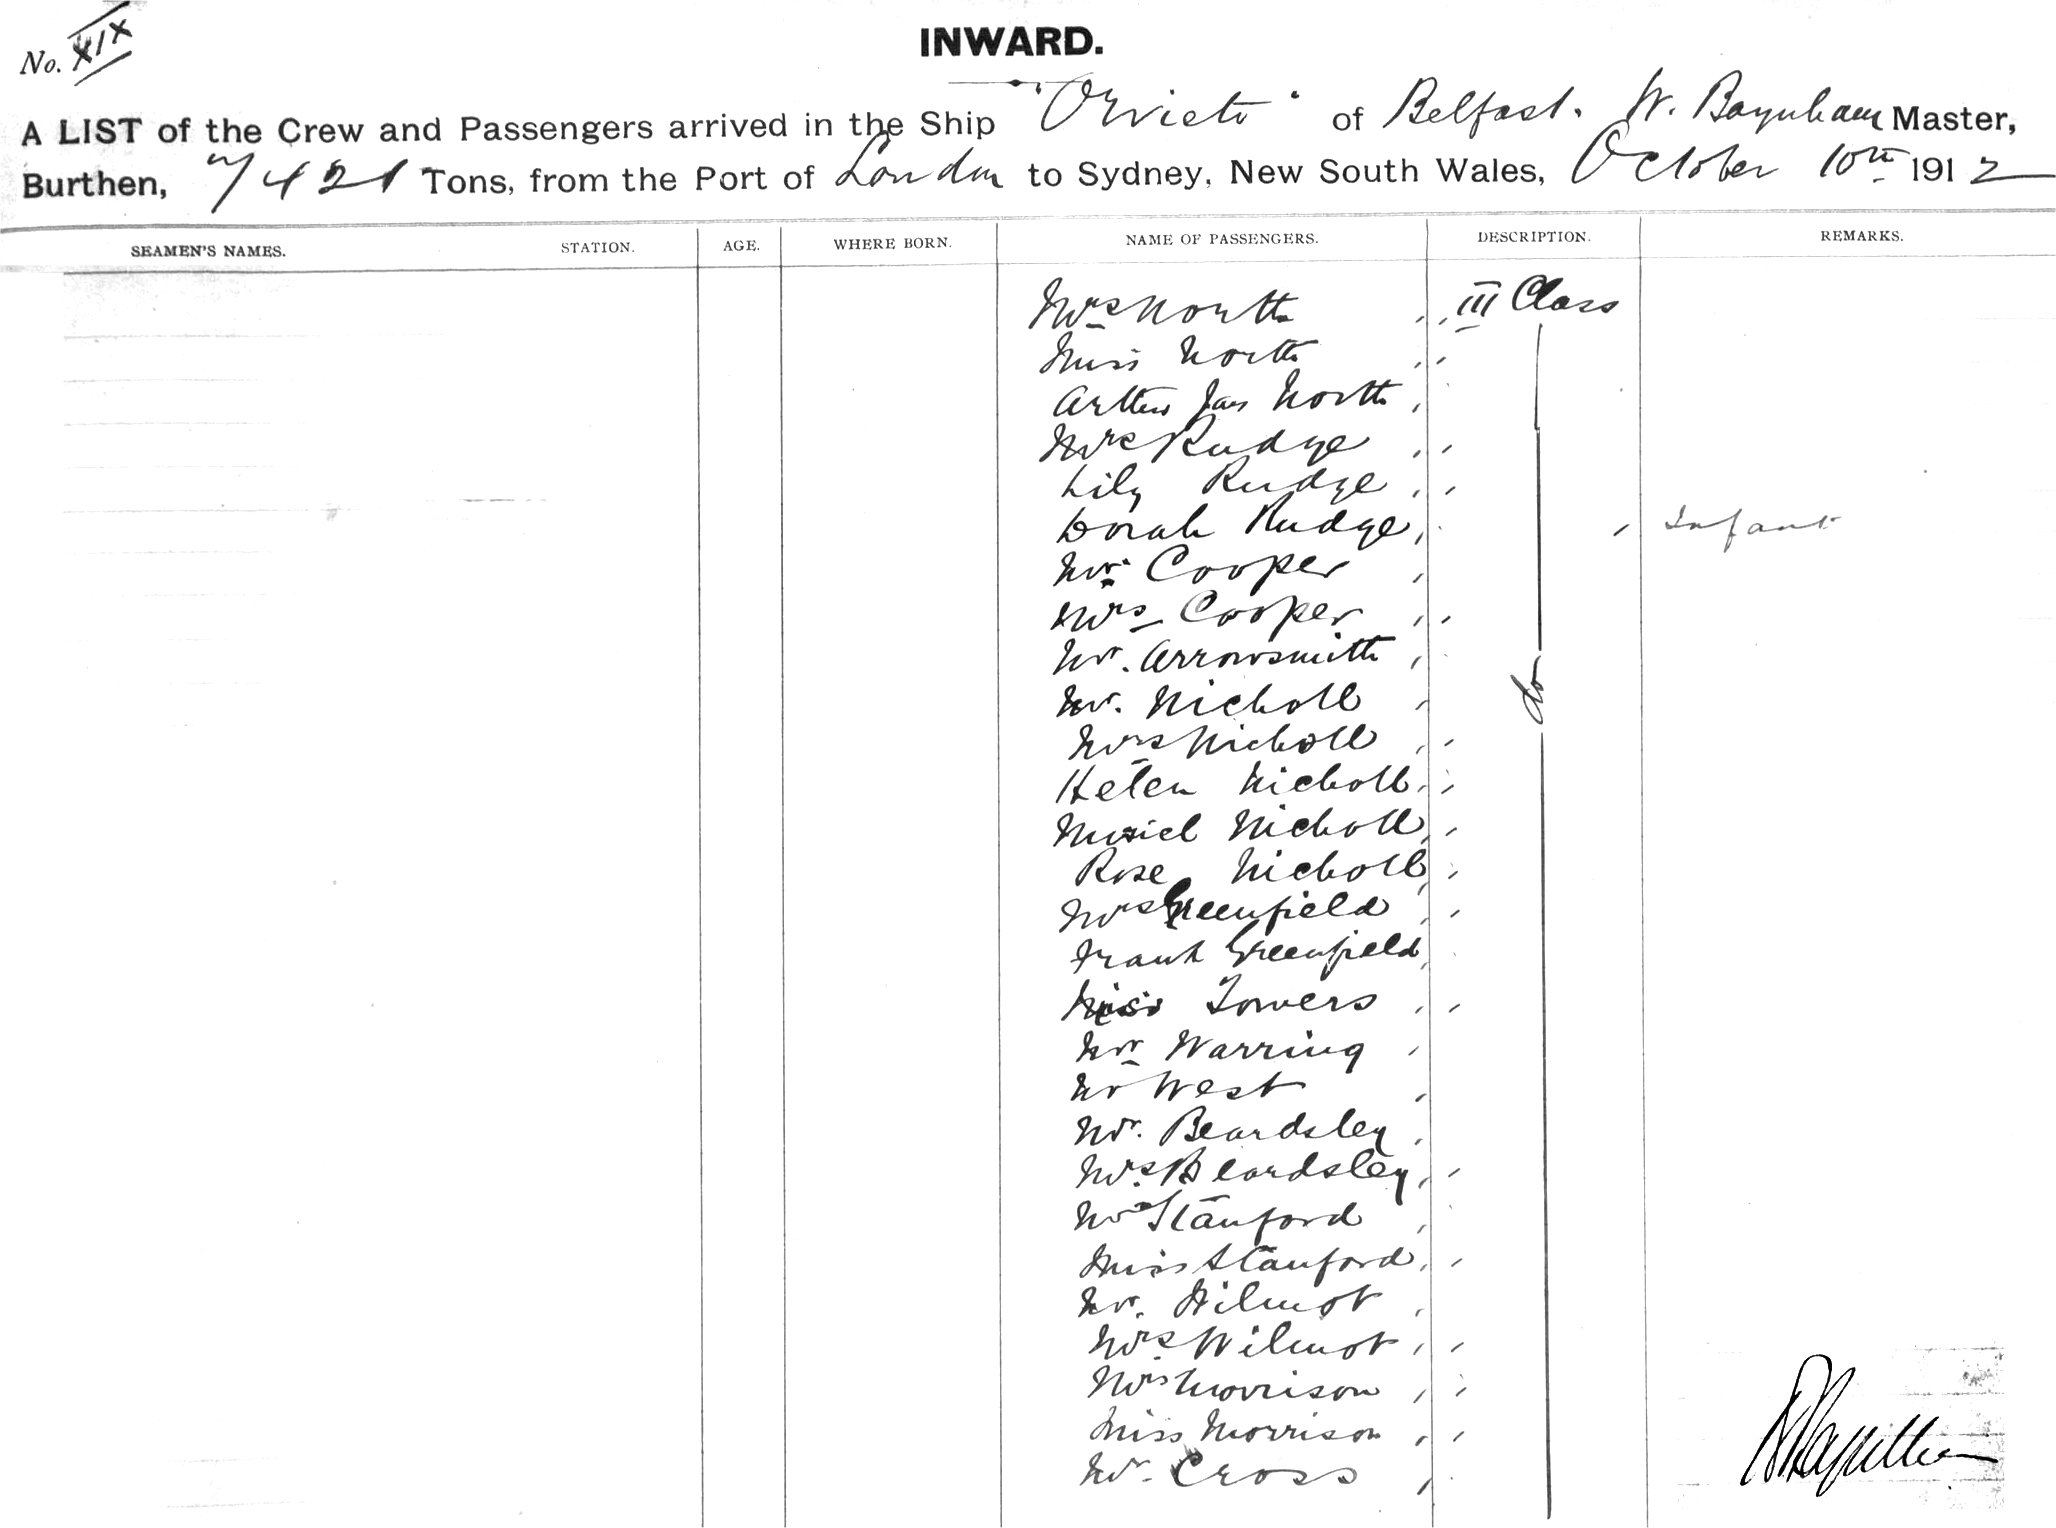 No. XIX
INWARD.
A LIST of the Crew and Passengers arrived in the Ship "Orvieto" of Belfast. W. Baynham Master,
Burthen, 7421 Tons, from the Port of London to Sydney, New South Wales, October 10th 1912
SEAMEN'S NAMES. STATION. AGE. WHERE BORN. NAME OF PASSENGERS. DESCRIPTION. REMARKS.
Mrs North , , III Class
Miss North , ,
Arthur Jas North ,
Mrs Rudge , ,
Lily Rudge , ,
Dorah Rudge , , Infant
Mr. Cooper ,
Mrs Cooper , ,
Mr. Arrowsmith ,
Mr. Nicholl , do
Mrs Nicholl , ,
Helen Nicholl , ,
Muriel Nicholl , ,
Rose Nicholl , ,
Mrs Greenfield , ,
Frank Greenfield ,
Miss Towers , ,
Mr Warring ,
Mr West ,
Mr. Beardsley ,
Mrs Beardsley , ,
Mr Stanford ,
Miss Stanford , ,
Mr. Wilmot ,
Mrs Wilmot , ,
Mrs Morrison , ,
Miss Morrison , ,
Mr. Cross ,